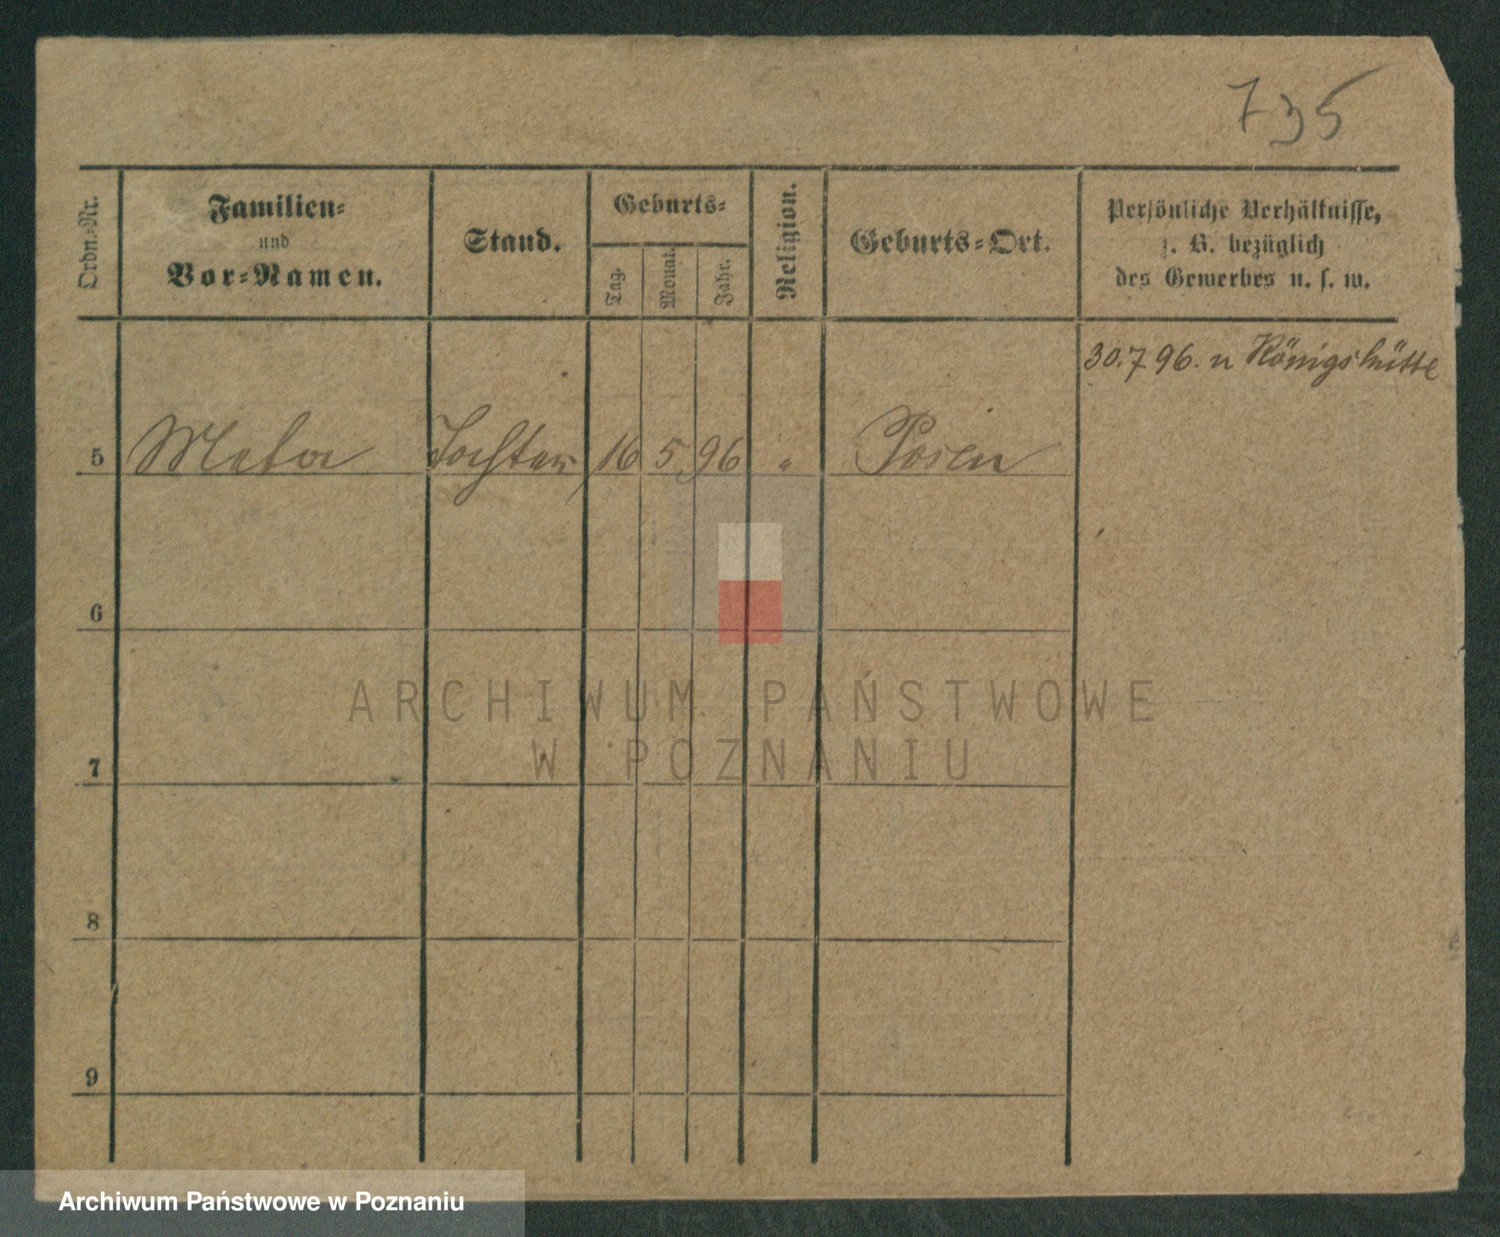 735
Ordn.-Nr.
Familien-
und
Vor-Namen.
Stand.
Geburts-
Tag.
Monat.
Jahr.
Religion.
Geburts-Ort.
Persönliche Verhältnisse,
z. B. bezüglich
des Gewerbes u. s. w.
30.7.96. n Königshütte
5 Meta Tochter 16 5 96 " Posen
6
7
8
9
ARCHIWUM PAŃSTWOWE
W POZNANIU
Archiwum Państwowe w Poznaniu